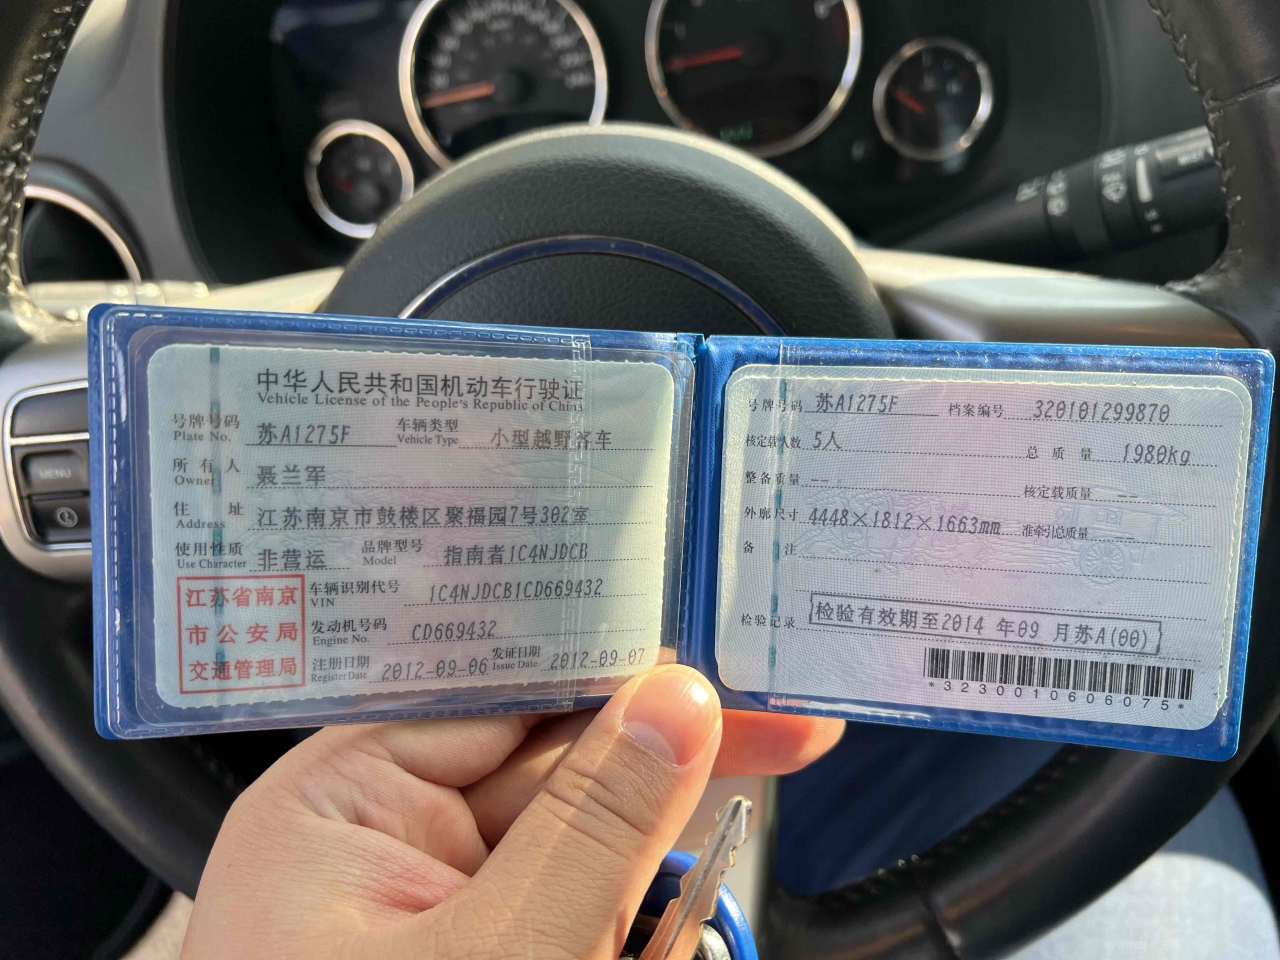 中华人民共和国机动车行驶证
Vehicle License of the People's Republic of China
号牌号码 苏A1275F 车辆类型 小型越野客车
Plate No. Vehicle Type
所有人 聂兰军
Owner
住址 江苏南京市鼓楼区聚福园7号302室
Address
使用性质 非营运 品牌型号 指南者1C4NJDCB
Use Character Model
江苏省南京
市公安局
交通管理局
车辆识别代号 1C4NJDCB1CD669432
VIN
发动机号码 CD669432
Engine No.
注册日期 2012-09-06 发证日期 2012-09-07
Register Date Issue Date
号牌号码 苏A1275F 档案编号 320101299870
核定载人数 5人 总质量 1980kg
整备质量 -- 核定载质量 --
外廓尺寸 4448×1812×1663mm 准牵引总质量 --
备注
检验记录 检验有效期至2014年09月苏A(00)
*3230010606075*
MENU